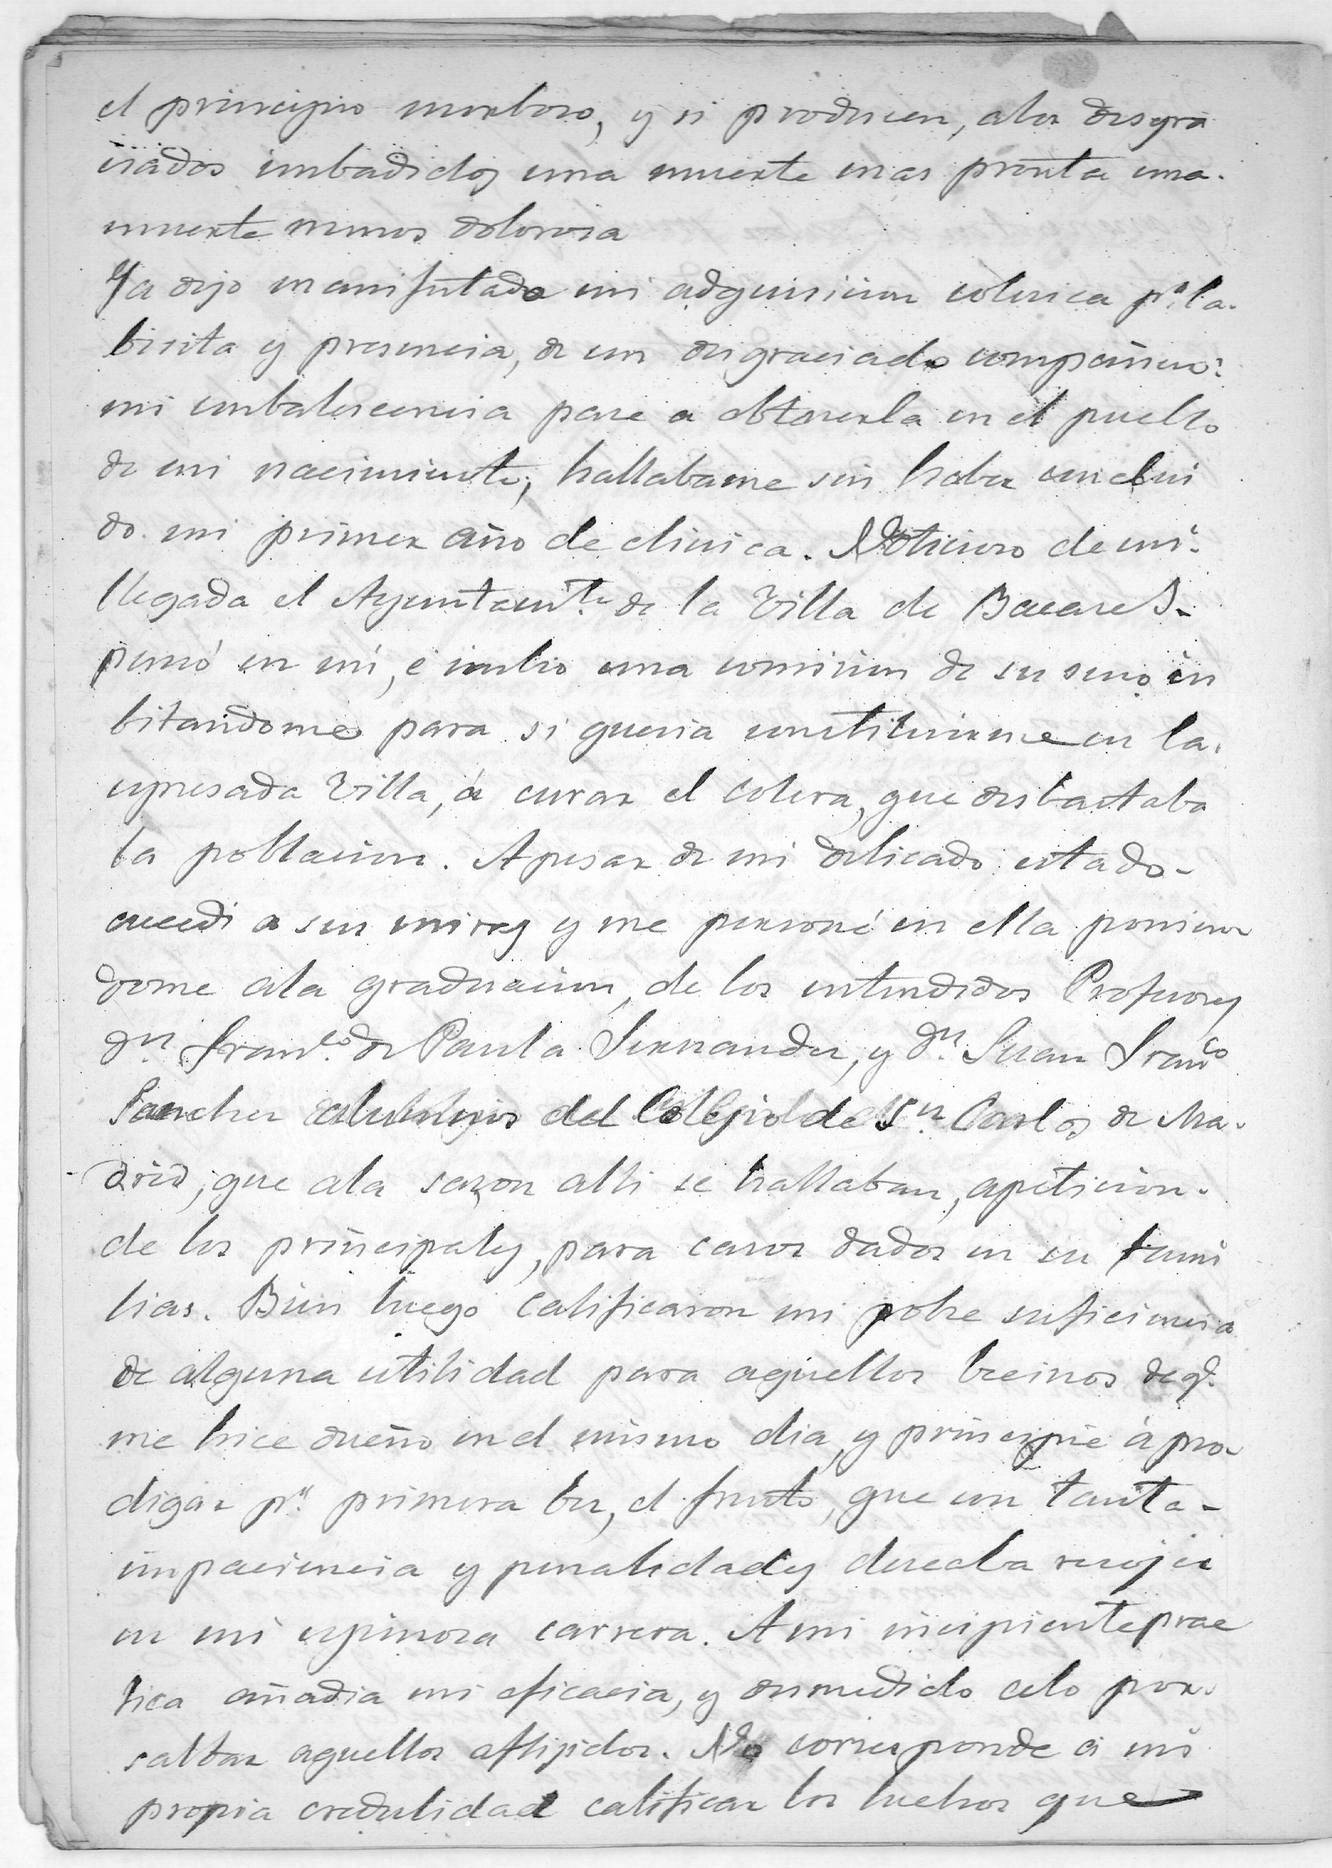 el principio morboso, y si producen, a los desgra
ciados imbadidos una muerte mas pronta una.
muerte menos dolorosa
Ya dejo manifestado mi adquisicion colerica pr. la.
bisita y presencia, de un desgraciado compañero:
mi conbalecencia pase a obtenerla en el pueblo
de mi nacimiento, hallabame sin haber conclui
do mi primer año de clinica. Noticioso de mi.
llegada el Ayuntamto. de la Villa de Bacares.
pensó en mí, e imbio una comision de su seno in
bitandome para si queria constituirme en la.
espresada Villa, á curar el colera, que desbastaba
la poblacion. Apesar de mi delicado estado-
accedi a sus miras y me personé en ella ponien
dome ala graduacion, de los entendidos Profesores
dn. Franco. de Paula Fernandez, y dn. Juan Franco
Sanchez alumnos del Colegio de Sn. Carlos de Ma.
drid, que ala sazon alli se hallaban, apeticion.
de los principales, para casos dados en su fami
lias. Bien luego calificaron mi pobre suficiencia
de alguna utilidad para aquellos becinos de q.
me hice dueño en el mismo dia, y principie á pro
digar pr. primera bez, el fruto, que con tanta-
impaciencia y penalidades deseaba recojer
en mi espinosa carrera. Ami incipiente prac
tica añadia mi eficacia, y desmedido celo por.
salbar aquellos aflijidos. No corresponde a mi
propia credulidad calificar los hechos que